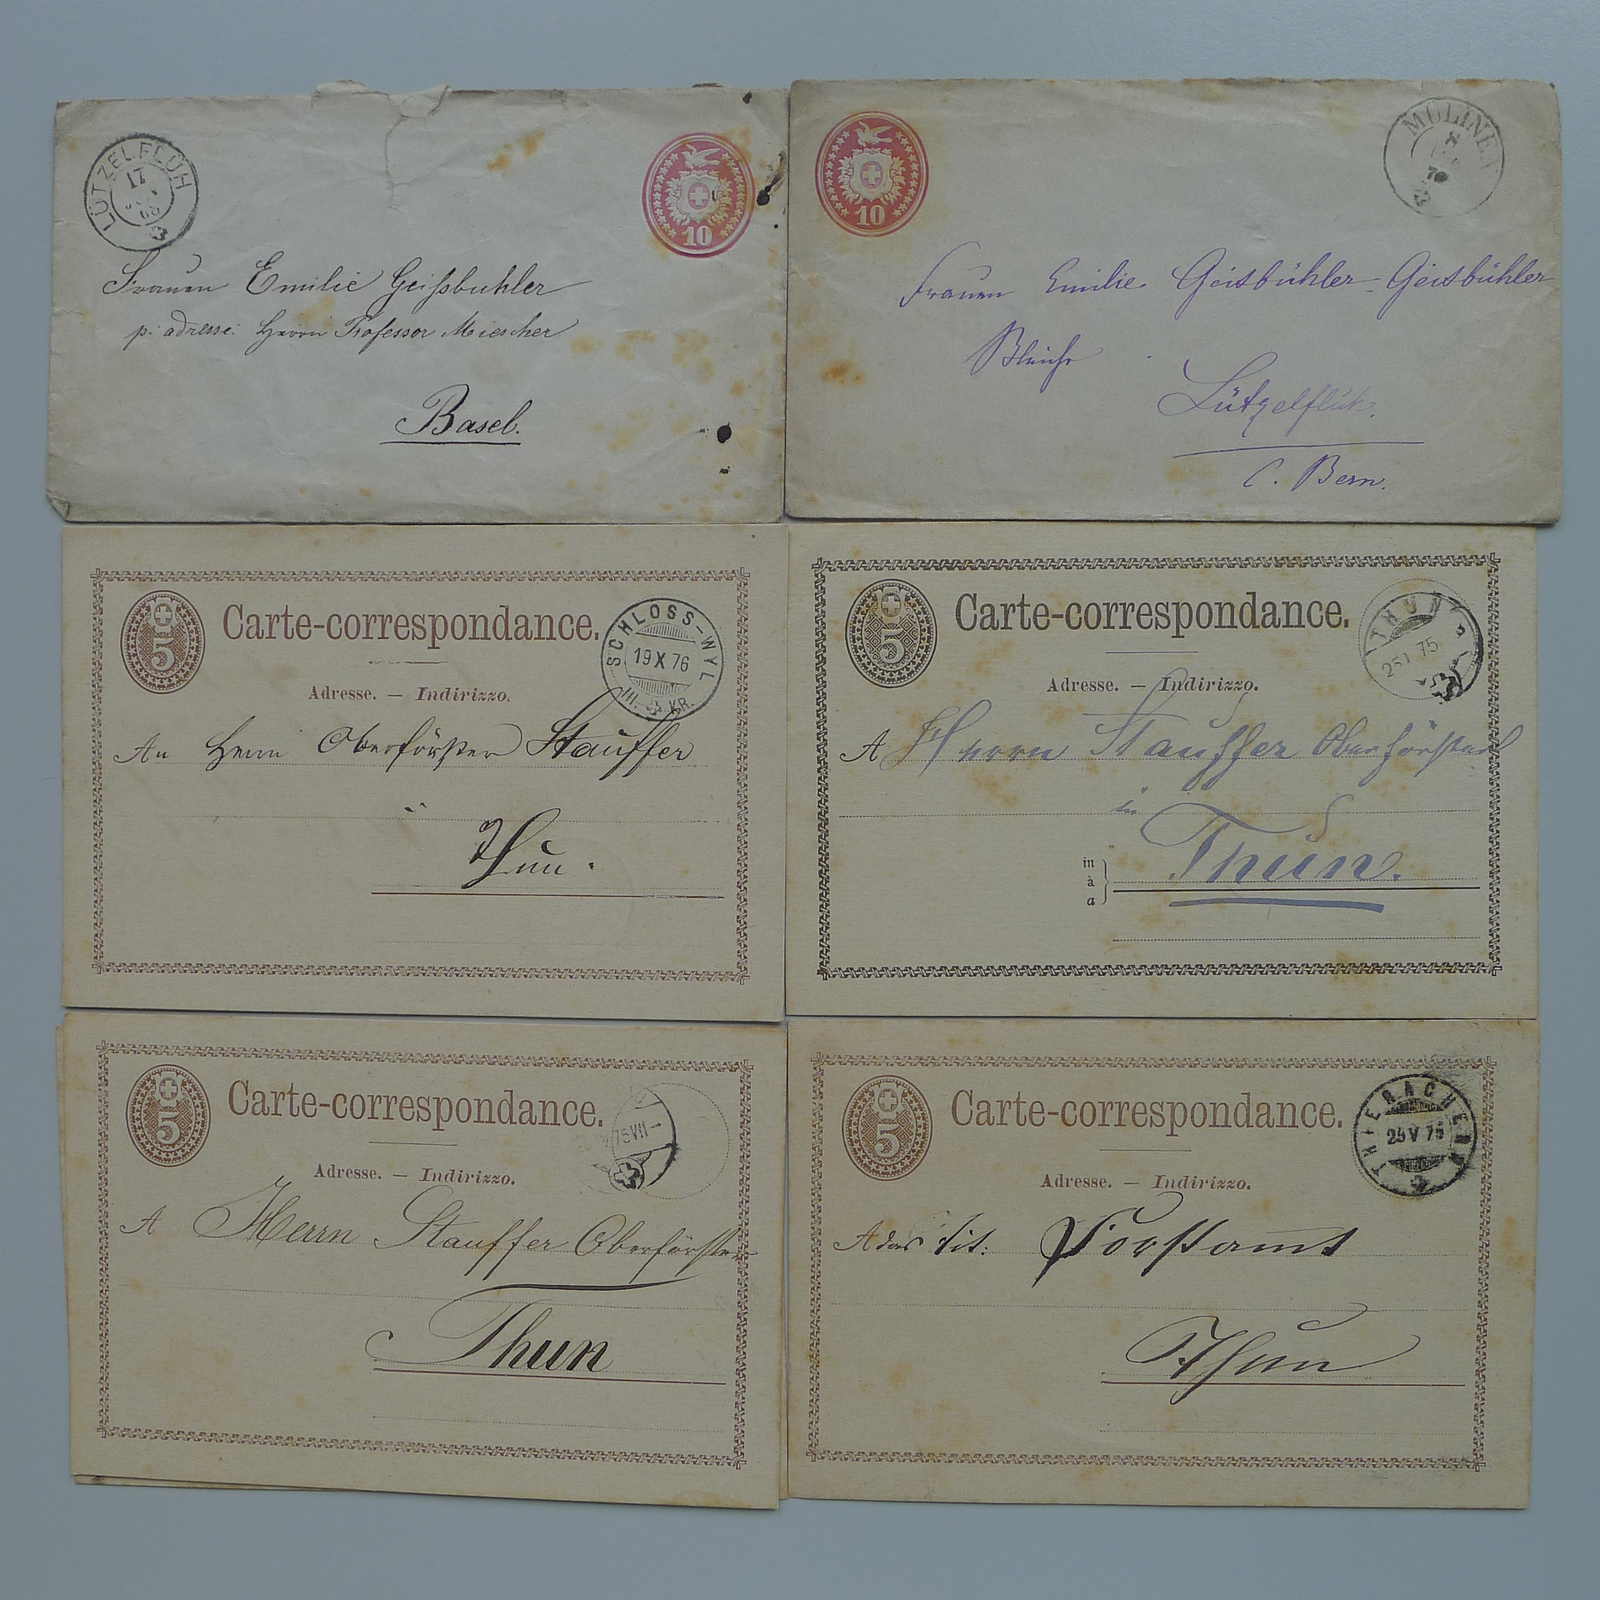 LÜTZELFLÜH
17
68
10
Frauen Emilie Geißbuhler
p. adresse: Herrn Professor Miescher
Basel.
10
MÜLINEN
X
70
Frauen Emilie Geisbühler-Geisbühler
Bleiche
Lützelflüh.
C. Bern.
5
Carte-correspondance.
SCHLOSS-WYL
19 X 76
III. KR.
Adresse. — Indirizzo.
An Herrn Oberförster Stauffer
in
Thun.
5
Carte-correspondance.
THUN
25 I 75
Adresse. — Indirizzo.
A Herrn Stauffer Oberförster
in
in
à
a
Thun.
5
Carte-correspondance.
75 VII —
Adresse. — Indirizzo.
A Herrn Stauffer Oberförster
Thun
5
Carte-correspondance.
THIERACHERN
Adresse. — Indirizzo.
A das Tit: Forstamt
Thun